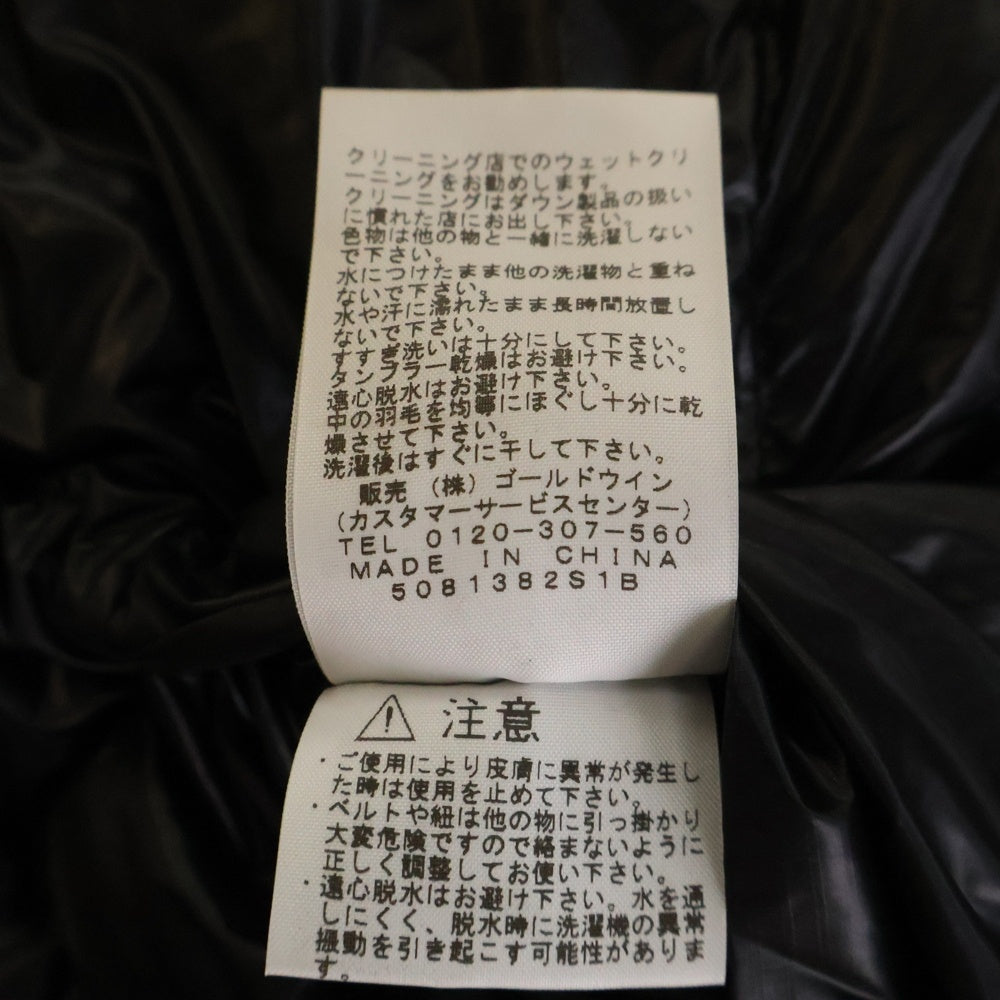 クリーニング店でのウェットクリ
ーニングをお勧めします。
クリーニングはダウン製品の扱い
に慣れた店にお出し下さい。
色物は他の物と一緒に洗濯しない
で下さい。
水につけたまま他の洗濯物と重ね
ないで下さい。
水や汗に濡れたまま長時間放置し
ないで下さい。
すすぎ洗いは十分にして下さい。
タンブラー乾燥はお避け下さい。
遠心脱水はお避け下さい。
中の羽毛を均等にほぐし十分に乾
燥させて下さい。
洗濯後はすぐに干して下さい。
販売 (株) ゴールドウイン
(カスタマーサービスセンター)
TEL 0120-307-560
MADE IN CHINA
5081382S1B
注意
・ご使用により皮膚に異常が発生し
た時は使用を止めて下さい。
・ベルトや紐は他の物に引っ掛かり
大変危険ですので絡まないように
正しく調整してお使い下さい。
・遠心脱水はお避け下さい。水を通
しにくく、脱水時に洗濯機の異常
振動を引き起こす可能性がありま
す。